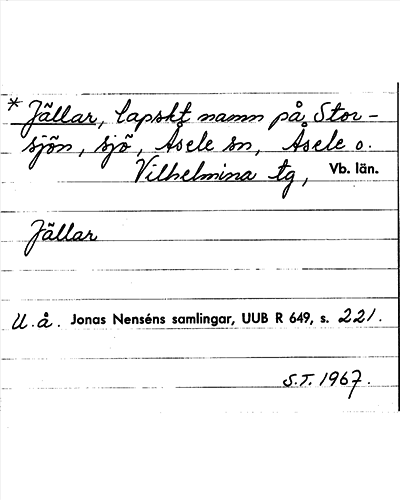 * Jällar, lapskt namn på Stor-
sjön, sjö, Åsele sn, Åsele o.
Vilhelmina tg, Vb. län.
Jällar
U.å. Jonas Nenséns samlingar, UUB R 649, s. 221.
S.T. 1967.